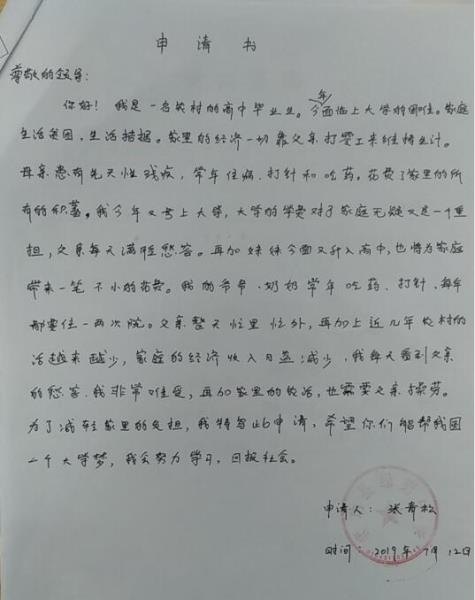 申请书
尊敬的领导:
你好！我是一名农村的高中毕业生。今年面临上大学的困难。家庭
生活贫困，生活拮据。家里的经济一切靠父亲打零工来维持生计。
母亲患有先天性残疾，常年住病、打针和吃药。花费了家里的所
有的积蓄。我今年又考上大学，大学的学费对于家庭无疑又是一个重
担，父亲每天满脸愁容。再加妹妹今面又升入高中，也将为家庭
带来一笔不小的花费。我的爷爷、奶奶常年吃药、打针、每年
都要住一两次院。父亲整天忙里忙外，再加上近几年农村的
活越来越少，家庭的经济收入日益减少，我每天看到父亲
的愁容，我非常难受，再加家里的农活，也需要父亲操劳。
为了减轻家里的负担，我特写此申请，希望你们能帮我圆
一个大学梦，我会努力学习，回报社会。
申请人: 张青松
时间: 2019年7月12日